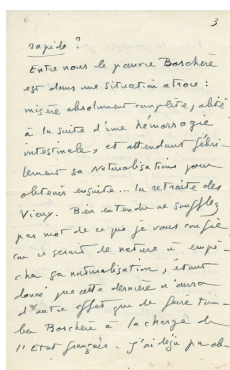 3
rapide ?
Entre nous le pauvre Boschère
est dans une situation atroce :
misère absolument complète, alité
à la suite d'une hémorragie
intestinale, et attendant fébri-
lement sa naturalisation pour
obtenir ensuite... la retraite des
Vieux. Bien entendu ne soufflez
pas mot de ce que je vous confie
car ce serait de nature à empê-
cher sa naturalisation, étant
donné que cette dernière n'aura
d'autre effet que de faire tom-
ber Boschère à la charge de
l'Etat français. J'ai déjà pu ob-